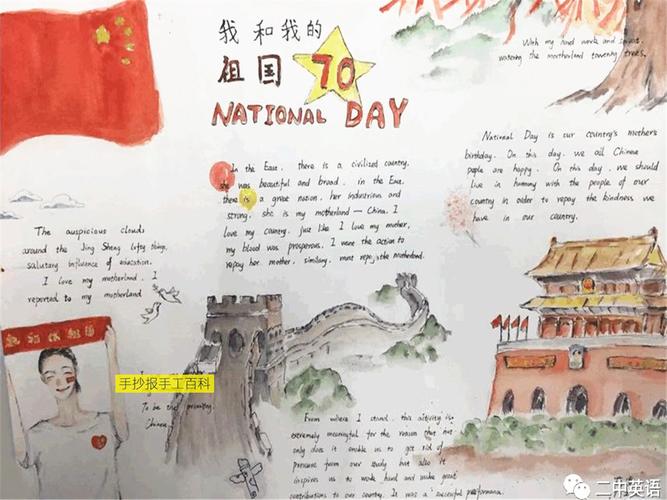 我和我的
祖国 70
NATIONAL DAY
With my hard work and
watering the motherland towering trees.
In the East, there is a civilized country,
she was beautiful and broad. in the East,
there is a great nation, her industrious and
strong. she is my motherland — China. I
love my country, just like I love my mother,
my blood was prosperous, I want the action to
repay her mother, similary, must repay the motherland.
National Day is our country's mother's
birthday. On this day, we all Chinese
people are happy. On this day, we should
live in harmony with the people of our
country in order to repay the kindness we
have in our country.
The auspicious clouds
around the Jing Sheng lofty things,
salutary influence of education.
I love my motherland. I
reported to my motherland
我和我的祖国
手抄报手工百科
To be the
China
From where I stand, this activity is
extremely meaningful for the reason that not
only does it enable us to get rid of
pressure from our study but also it
inspires us to work hard and make great
contributions to our country. It was a successful performance.
二中英语